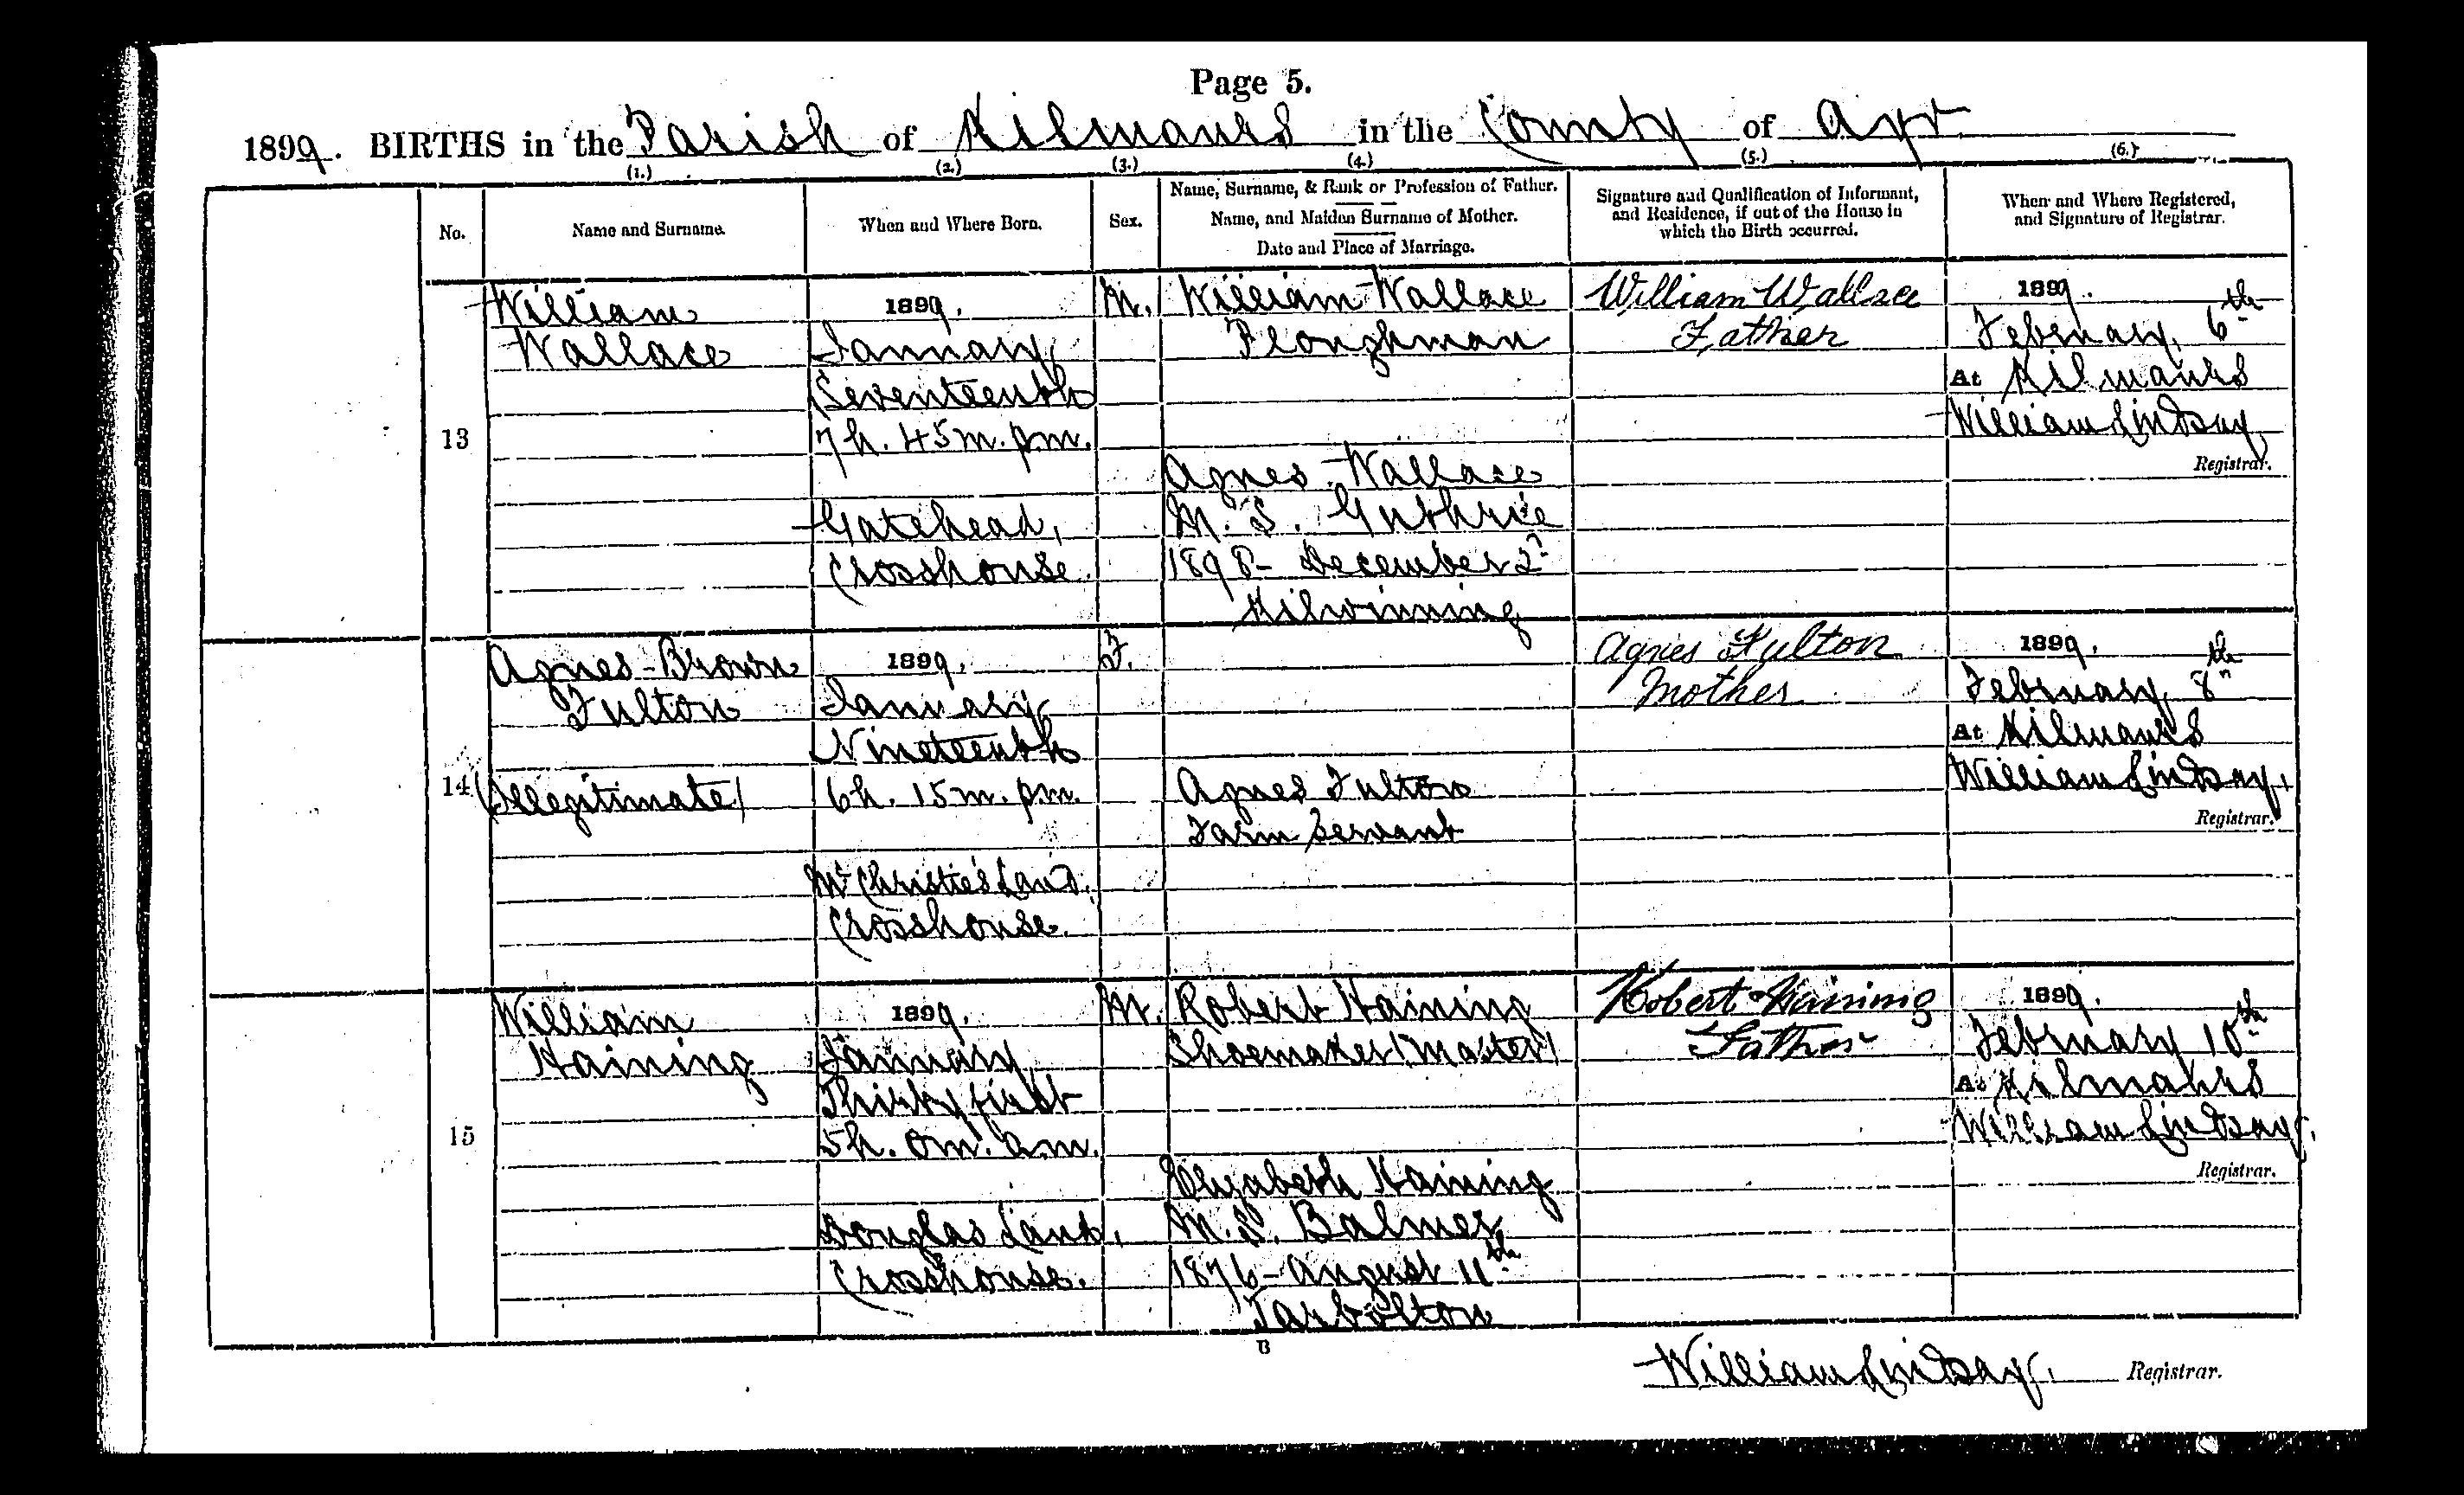 Page 5.
1899. BIRTHS in the Parish of Kilmaurs in the County of Ayr
(1.) (2.) (3.) (4.) (5.) (6.)
No.
Name and Surname.
When and Where Born.
Sex.
Name, Surname, & Rank or Profession of Father.
Name, and Maiden Surname of Mother.
Date and Place of Marriage.
Signature and Qualification of Informant,
and Residence, if out of the House in
which the Birth occurred.
When and Where Registered,
and Signature of Registrar.
13
William
Wallace
1899.
January
Seventeenth
7h. 45m. p.m.
Gatehead,
Crosshouse.
M.
William Wallace
Ploughman
Agnes Wallace
M.S. Guthrie
1898 - December 2d
Kilwinning
William Wallace
Father
1899.
February, 6th
At Kilmaurs
William Lindsay
Registrar.
14
Agnes Brown
Fulton
(Illegitimate)
1899.
January,
Nineteenth
6h. 15m. p.m.
McChristie's Land,
Crosshouse.
F.
Agnes Fulton
Farm Servant
Agnes Fulton
Mother
1899.
February, 8th
At Kilmaurs
William Lindsay,
Registrar.
15
William
Haining
1899.
January,
Thirty first
5h. 0m. a.m.
Douglas Land,
Crosshouse.
M.
Robert Haining
Shoemaker (Master)
Elizabeth Haining
M.S. Balmer
1876 - August 11th
Tarbolton
Robert Haining
Father
1899.
February 10th
At Kilmaurs
William Lindsay.
Registrar.
B
William Lindsay. Registrar.